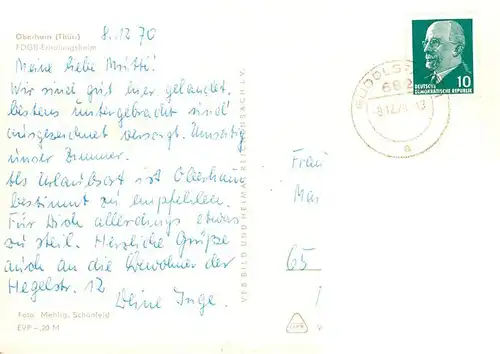 Oberhain (Thür.)
FDGB-Erholungsheim
8.12.70
Meine liebe Mutti!
Wir sind gut hier gelandet,
bestens untergebracht und
ausgezeichnet versorgt.
unser Zimmer.
Als Urlaubsort ist Oberhain
bestimmt zu empfehlen.
Für Dich allerdings etwas
zu steil. Herzliche Grüße
auch an die Bewohner der
Hegelstr. 12
Deine Inge.
Foto: Mehlig, Schönfeld
EVP -,20 M
VEB BILD UND HEIMAT REICHENBACH I. V.
RUDOLS
682
-8.12.70-13
a
10
DEUTSCHE
DEMOKRATISCHE REPUBLIK
Frau
Mar
65
V